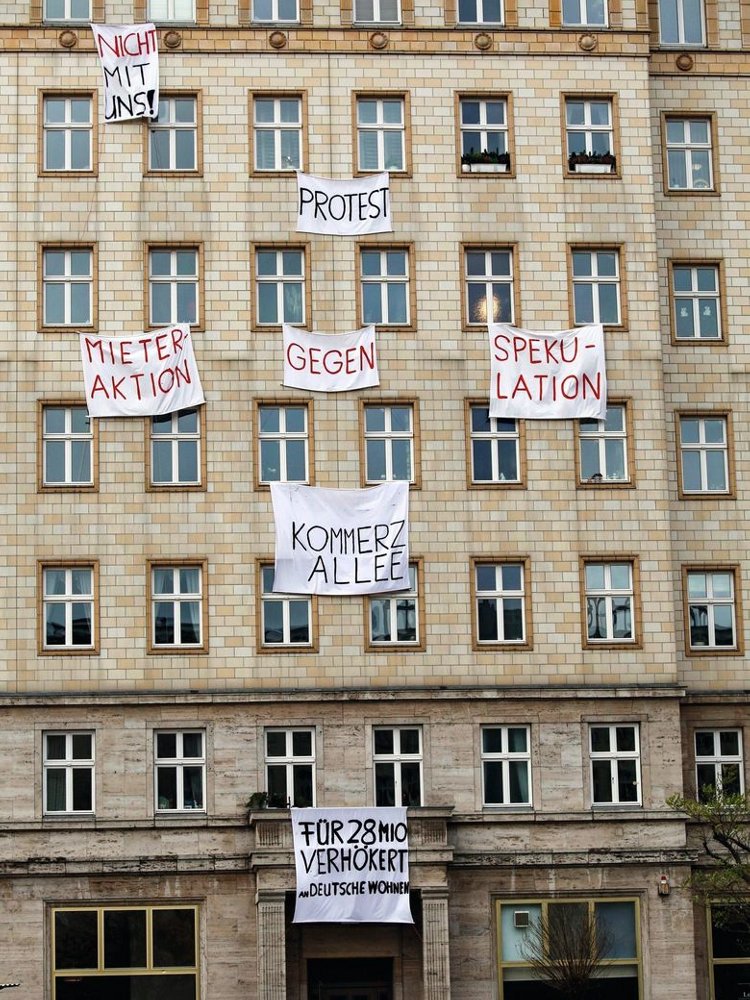 NICHT
MIT
UNS!
PROTEST
MIETER-
AKTION
GEGEN
SPEKU-
LATION
KOMMERZ
ALLEE
FÜR 28 MIO
VERHÖKERT
AN DEUTSCHE WOHNEN